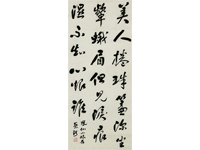 美人捲珠簾深坐
顰蛾眉但見淚痕
濕不知心恨誰